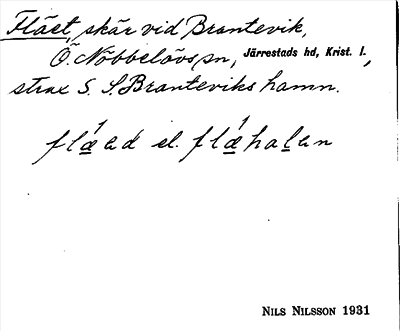 Fläet, skär vid Brantevik,
Ö. Nöbbelövs sn, Järrestads hd, Krist. l.,
strax S. S. Branteviks hamn.
flǽad el. flǽhalan
NILS NILSSON 1931